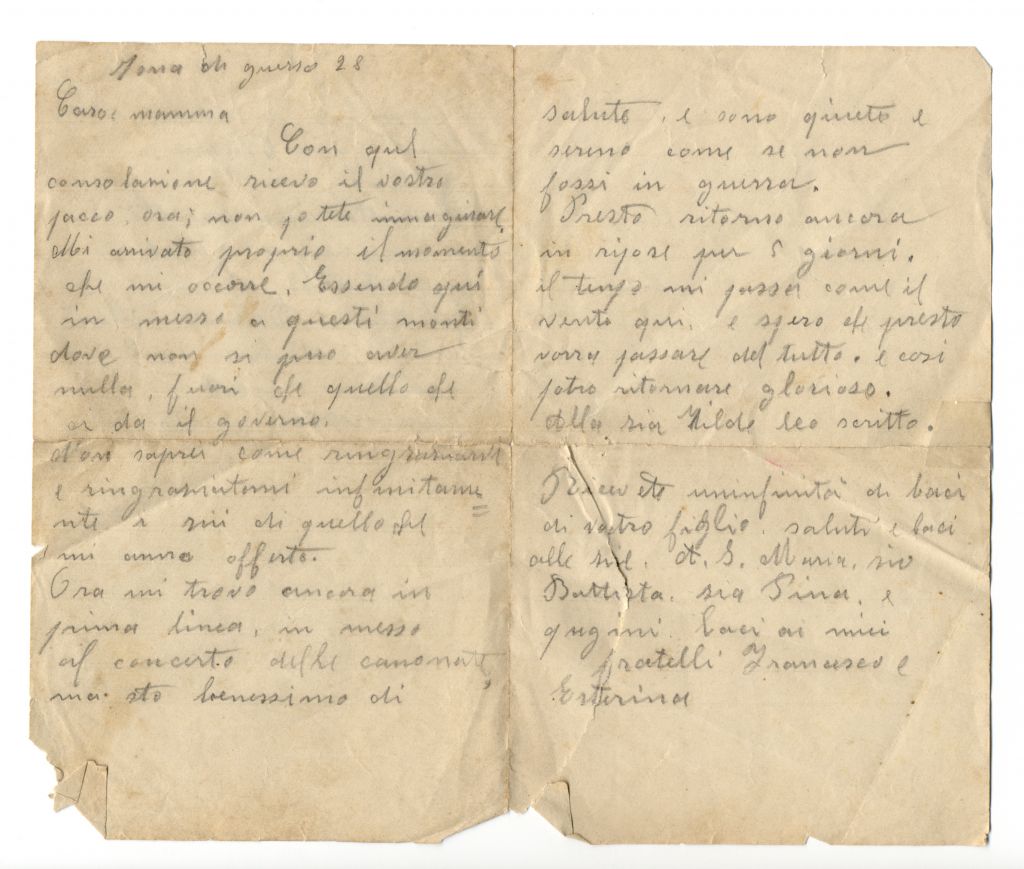 Zona di guerra 28
Cara mamma
Con qual
consolazione ricevo il vostro
pacco, ora; non potete immaginare
Mi arrivato proprio il momento
che mi occorre. Essendo qui
in messo a questi monti
dove non si puo aver
nulla, fuori che quello che
ci da il governo.
Non saprei come ringrasiarvi
e ringrasiatemi infinitame=
nte i sii di quello che
mi anno offerto.
Ora mi trovo ancora in
prima linea, in messo
al concerto delle canonate,
ma sto benessimo di
salute, e sono quieto e
sereno come se non
fossi in guerra.
Presto ritorno ancora
in ripose per 5 giorni.
il tempo mi passa come il
vento qui, e spero che presto
vorra passare del tutto. e cosi
potro ritornare glorioso.
Alla sia Nilde leo scritto.
Ricevete uninfinità di baci
di vostro figlio, saluti e baci
alle sie, A. S. Maria, sio
Battista, sia Pina, e
qugini, baci ai miei
fratelli Francesco e
Esterina